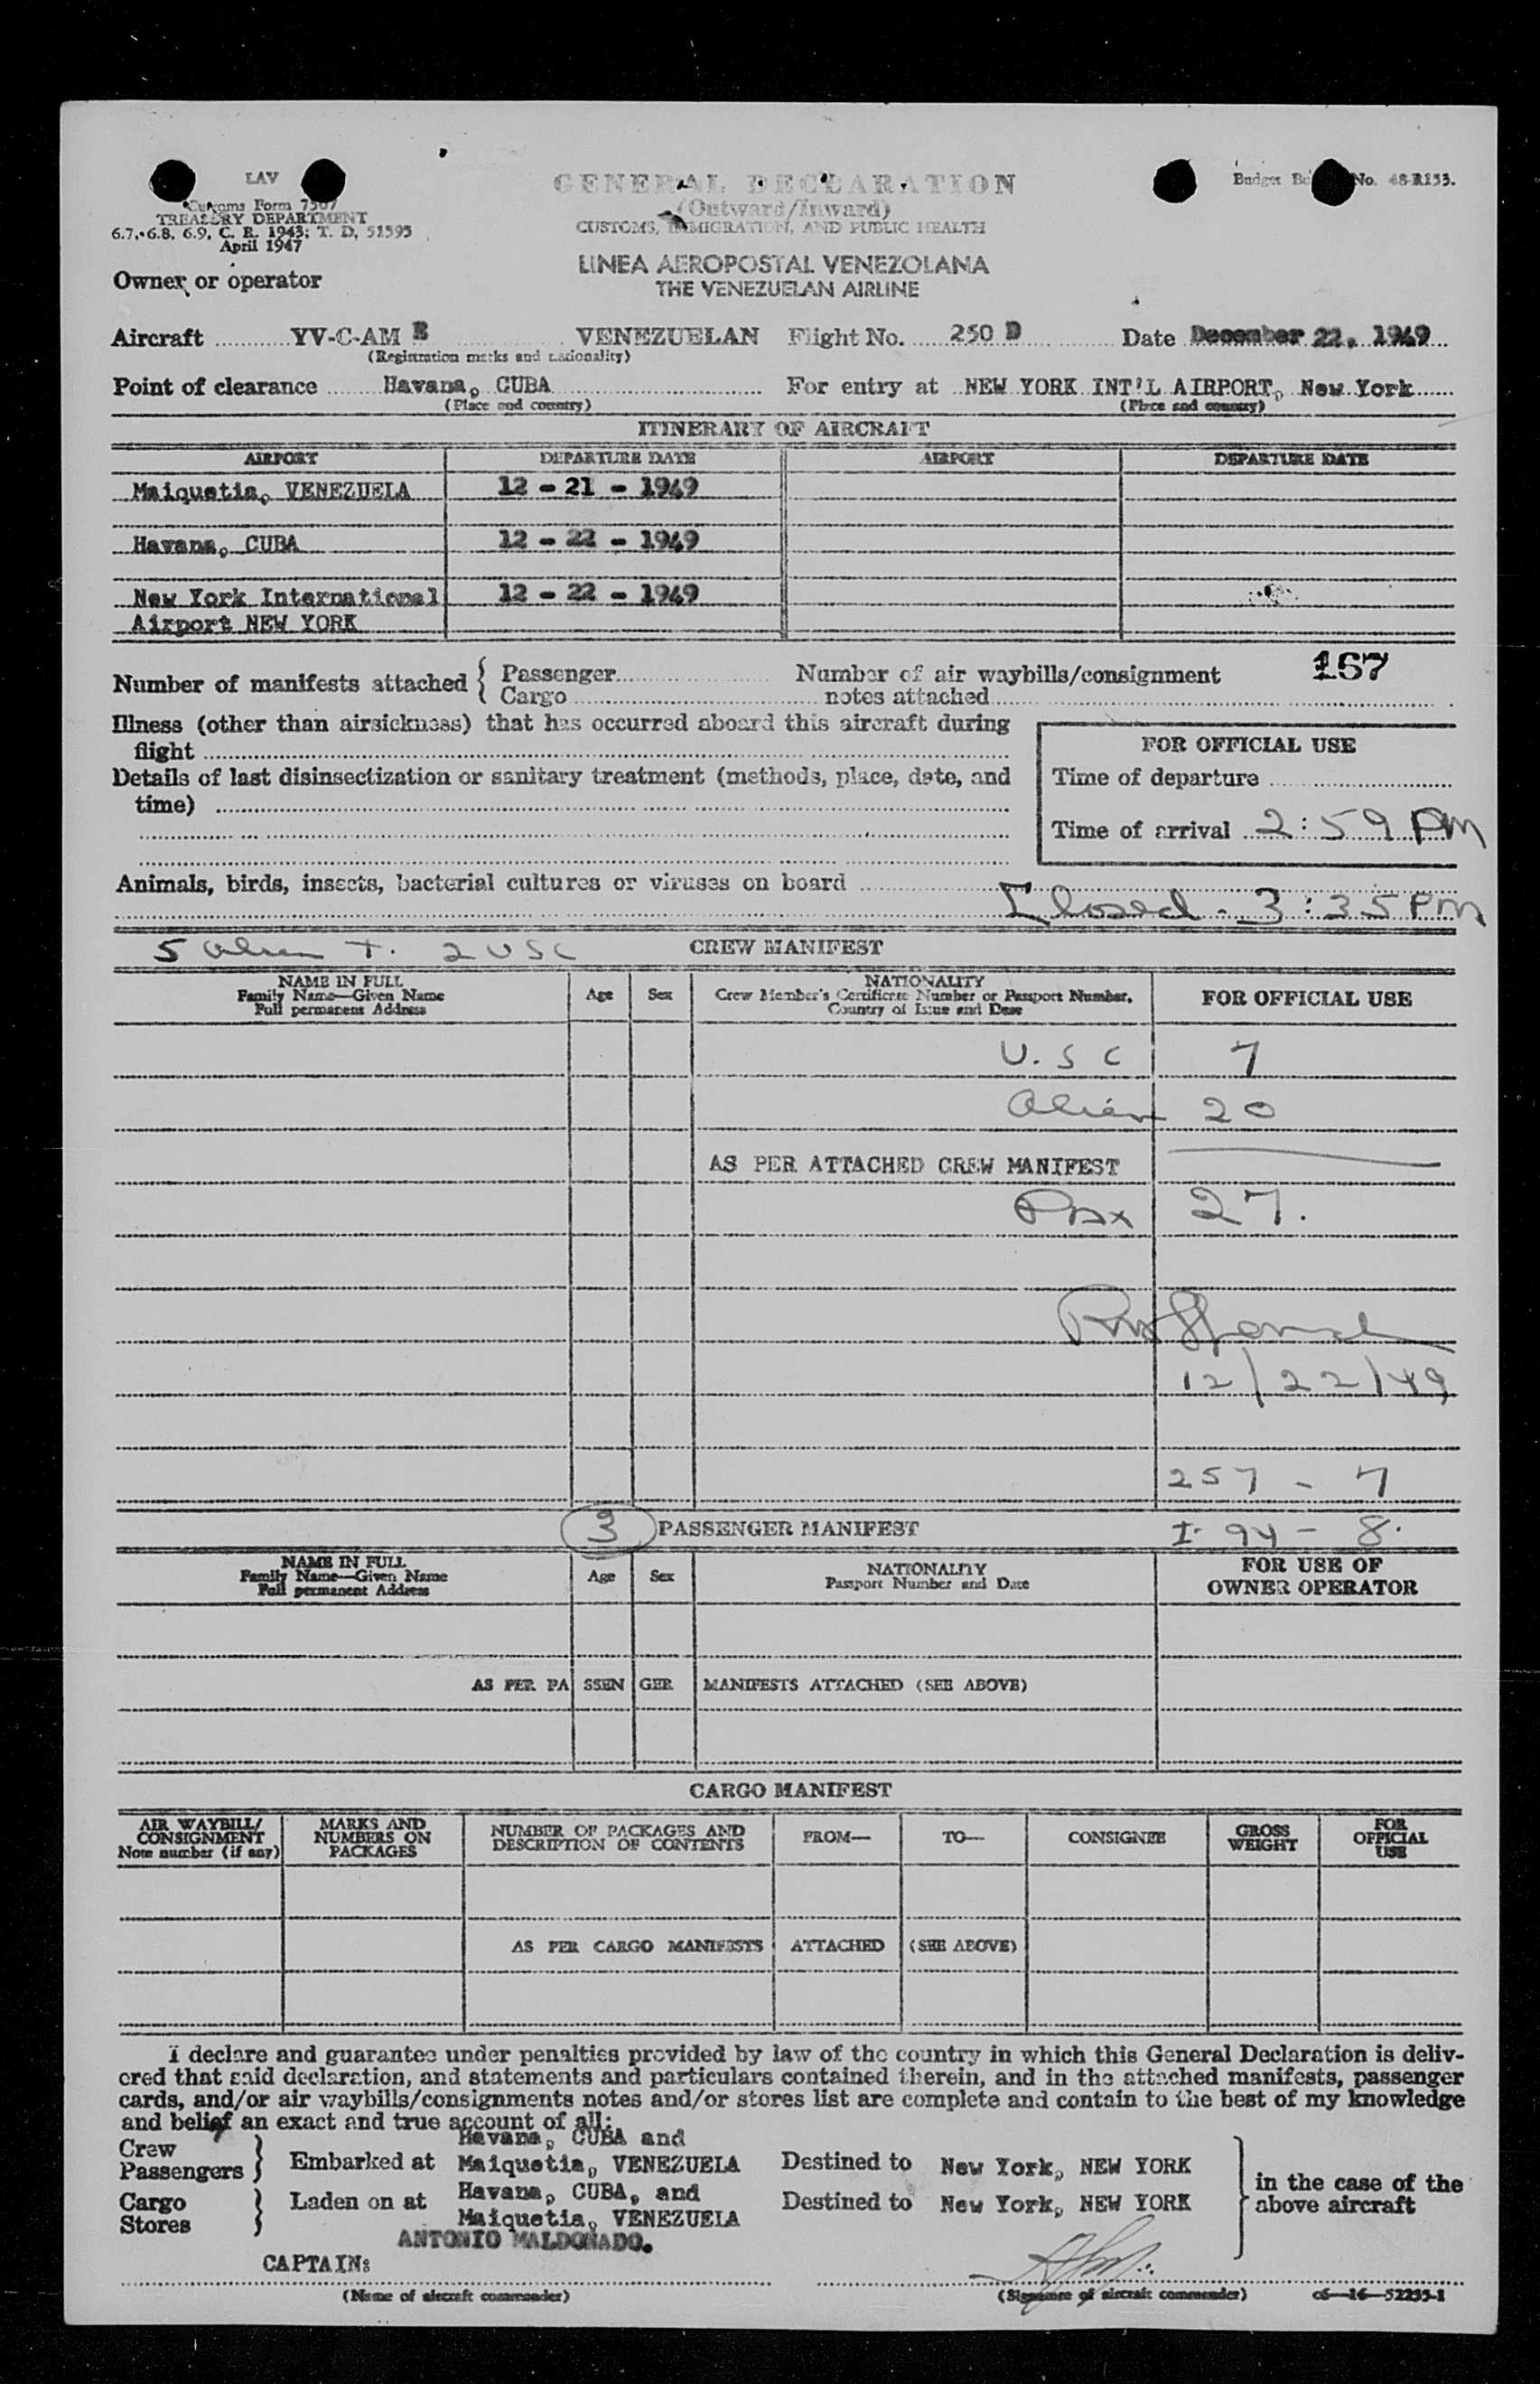 LAV
Customs Form 7507
TREASURY DEPARTMENT
6.7, 6.8, 6.9, C. R. 1943; T. D. 51595
April 1947
GENERAL DECLARATION
(Outward/Inward)
CUSTOMS, IMMIGRATION, AND PUBLIC HEALTH
Budget No. 48-R153.
LINEA AEROPOSTAL VENEZOLANA
THE VENEZUELAN AIRLINE
Owner or operator
Aircraft YV-C-AM E VENEZUELAN Flight No. 250 D Date December 22, 1949
(Registration marks and nationality)
Point of clearance Havana, CUBA For entry at NEW YORK INT'L AIRPORT, New York
(Place and country) (Place and country)
ITINERARY OF AIRCRAFT
AIRPORT DEPARTURE DATE AIRPORT DEPARTURE DATE
Maiquetia, VENEZUELA 12 - 21 - 1949
Havana, CUBA 12 - 22 - 1949
New York International 12 - 22 - 1949
Airport NEW YORK
167
Number of manifests attached { Passenger Number of air waybills/consignment
Cargo notes attached
Illness (other than airsickness) that has occurred aboard this aircraft during
flight
FOR OFFICIAL USE
Details of last disinsectization or sanitary treatment (methods, place, date, and
time)
Time of departure
Time of arrival 2:59 PM
Animals, birds, insects, bacterial cultures or viruses on board
Closed - 3:35 PM
5 alien + 2 USC CREW MANIFEST
NAME IN FULL
Family Name—Given Name
Full permanent Address
Age Sex
NATIONALITY
Crew Member's Certificate Number or Passport Number,
Country of Issue and Date
FOR OFFICIAL USE
U. S C 7
alien 20
AS PER ATTACHED CREW MANIFEST
Pax 27.
12/22/49
257 - 7
3 PASSENGER MANIFEST I-94 - 8.
NAME IN FULL
Family Name—Given Name
Full permanent Address
Age Sex
NATIONALITY
Passport Number and Date
FOR USE OF
OWNER OPERATOR
AS PER PASSENGER MANIFESTS ATTACHED (SEE ABOVE)
CARGO MANIFEST
AIR WAYBILL/
CONSIGNMENT
Note number (if any)
MARKS AND
NUMBERS ON
PACKAGES
NUMBER OF PACKAGES AND
DESCRIPTION OF CONTENTS
FROM— TO— CONSIGNEE
GROSS
WEIGHT
FOR
OFFICIAL
USE
AS PER CARGO MANIFESTS ATTACHED (SEE ABOVE)
I declare and guarantee under penalties provided by law of the country in which this General Declaration is deliv-
ered that said declaration, and statements and particulars contained therein, and in the attached manifests, passenger
cards, and/or air waybills/consignments notes and/or stores list are complete and contain to the best of my knowledge
and belief an exact and true account of all:
Havana, CUBA and
Crew
Passengers } Embarked at Maiquetia, VENEZUELA Destined to New York, NEW YORK
in the case of the
above aircraft
Havana, CUBA, and
Cargo
Stores } Laden on at Maiquetia, VENEZUELA Destined to New York, NEW YORK
ANTONIO MALDONADO.
CAPTAIN:
(Name of aircraft commander) (Signature of aircraft commander) c6—16—52255-1